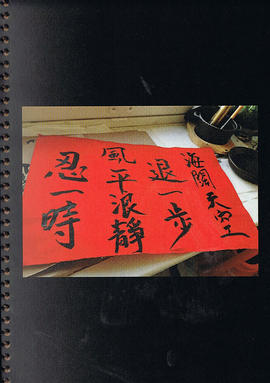 忍一時
風平浪靜
退一步
海闊天空